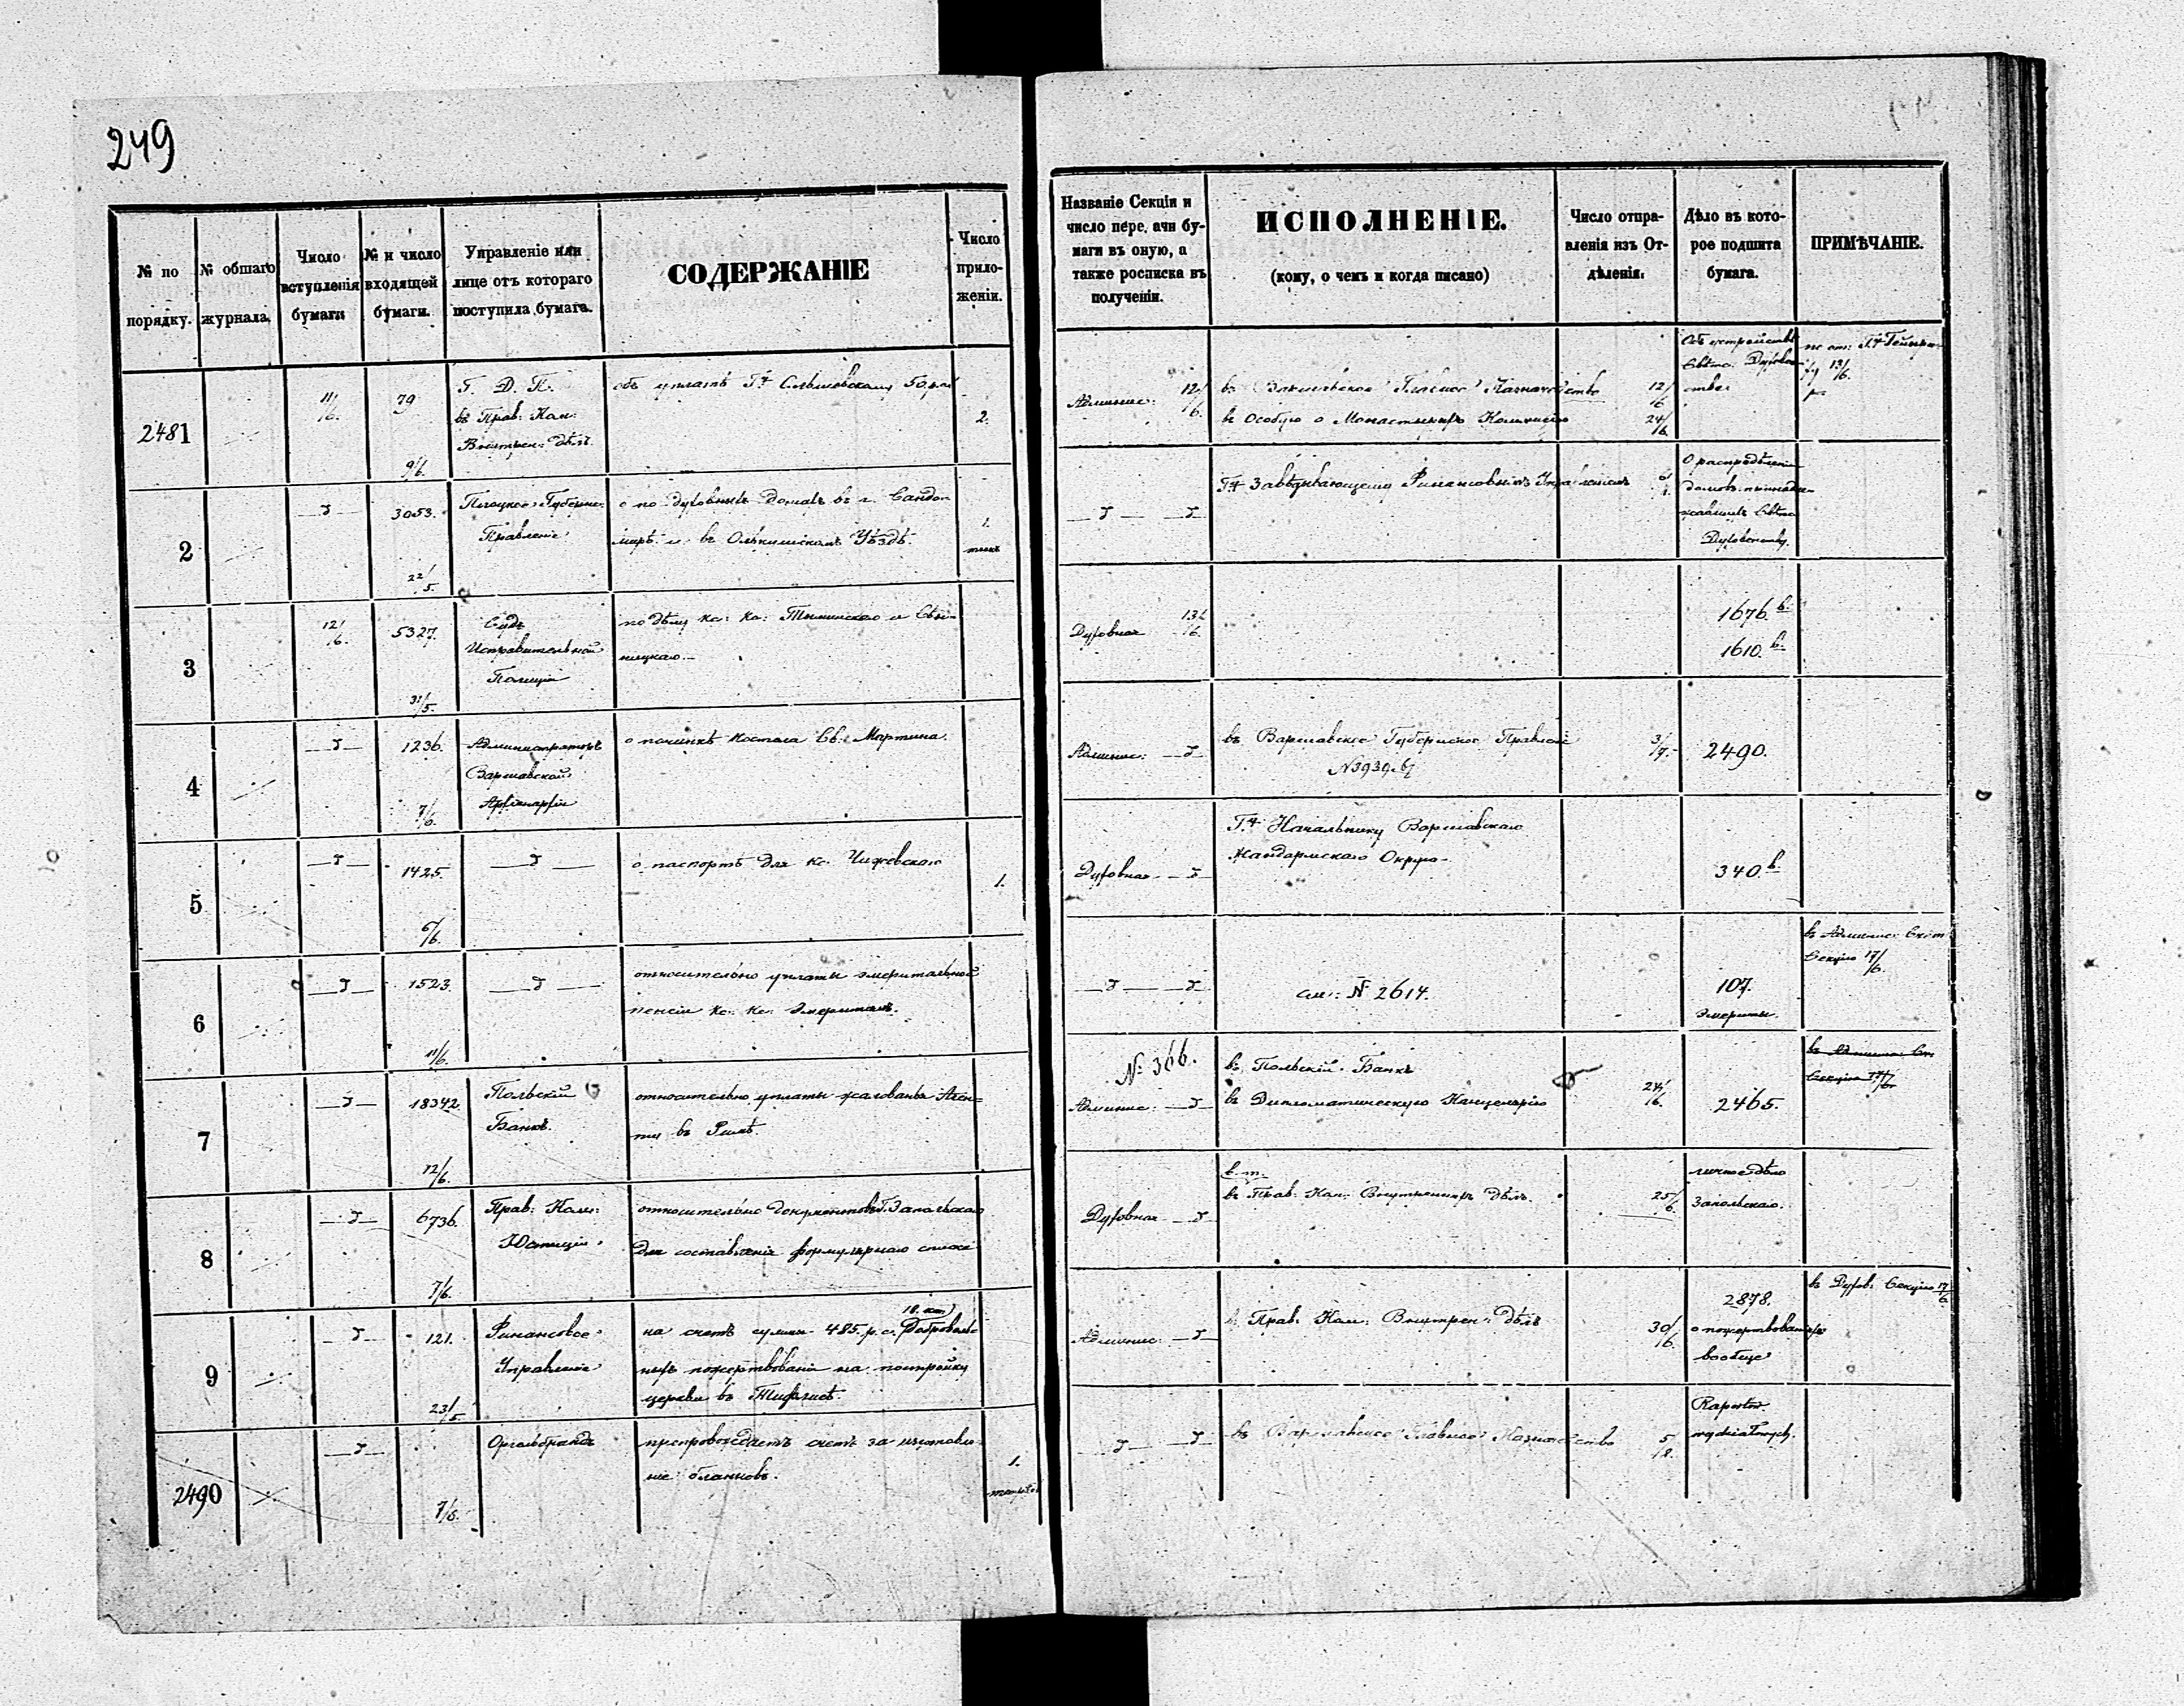 249
№ по порядку.
№ общаго журнала.
Число вступленія бумаги
№ и число входящей бумаги.
Управленіе или лице отъ котораго поступила бумага.
СОДЕРЖАНІЕ
Число приложеніи.
Названіе Секціи и число пере, ачи бумаги въ оную, а также росписка въ полученіи.
ИСПОЛНЕНІЕ.
(кому, о чемъ и когда писано)
Число отправленія изъ Отдѣленія.
Дѣло въ которое подшита бумага.
ПРИМѢЧАНІЕ.
2481
11/6.
79
9/6.
Г. Д. К.
въ Прав: Ком:
Внутрен: дѣлъ
объ уплатѣ Г-у
50 р.
2.
Админис: 12/6.
Главное Казначейство
12/6
въ Особую о Монастыряхъ Коммисію
24/6
Объ устройствѣ
Свѣтс. Духовен-
ства
13/6.
2
3053.
22/5.
Плоцкое Губернс:
Правленіе
о по-духовныхъ домахъ въ г. Сандо-
мирѣ и въ Олькушскомъ Уѣздѣ.
1.
Г-у Завѣдывающему Финансовымъ Управленіемъ
О распредѣленіи
домовъ принадле-
жавшихъ Свѣтс.
Духовенству.
3
12/6.
5327.
31/5.
Судъ
Исправительной
Полиціи
по дѣлу кс: кс:
ницкаго.
Духовная 13/6.
1676 в.
1610. в.
4
1236.
7/6.
Администраторъ
Варшавской
Архіепархіи
о починкѣ костела Св. Мартина.
Админис:
въ Варшавское Губернское Правленіе
N 3939
3/7.
2490.
5
1425.
6/6.
о паспортѣ для кс. Чижевскаго
1.
Духовная
Г-у Начальнику Варшавскаго
Жандармскаго Округа.
340. в
6
1523.
11/6.
относительно уплаты эмеритальной
пенсіи кс. кс. Эмеритамъ.
см: № 2614.
107.
Эмериты.
въ Админис:
Секцію 17/6.
7
18342.
12/6.
Польскій
Банкъ.
относительно уплаты жалованья Аген-
ту въ Римѣ.
№ 366.
Админис:
въ Польскій Банкъ
въ Дипломатическую Канцелярію
24/6.
2465.
въ Админис:
Секцію 17/6.
8
6736.
7/6.
Прав: Ком:
Юстиціи
относительно документовъ Г. Запольскаго
для составленія формулярнаго списка
Духовная
в. т.
въ Прав: Ком: Внутреннихъ дѣлъ.
25/6
личное дѣло
Запольскаго.
9
121.
23/5.
Финансовое
Управленіе
на счетъ суммы 485. р. с. 18. коп) Доброволь-
ныхъ пожертвованій на постройку
церкви въ Тифлисѣ.
Админис:
Прав: Ком: Внутрен: дѣлъ
30/6.
2878.
о пожертвованіяхъ
вообще
въ Духов: Секцію 17/6
2490
7/6.
Оргельбрандъ
препровождаетъ счетъ за изготовле-
ніе бланковъ.
1.
въ Варшавское Главное Казначейство
5/8.
Raportów